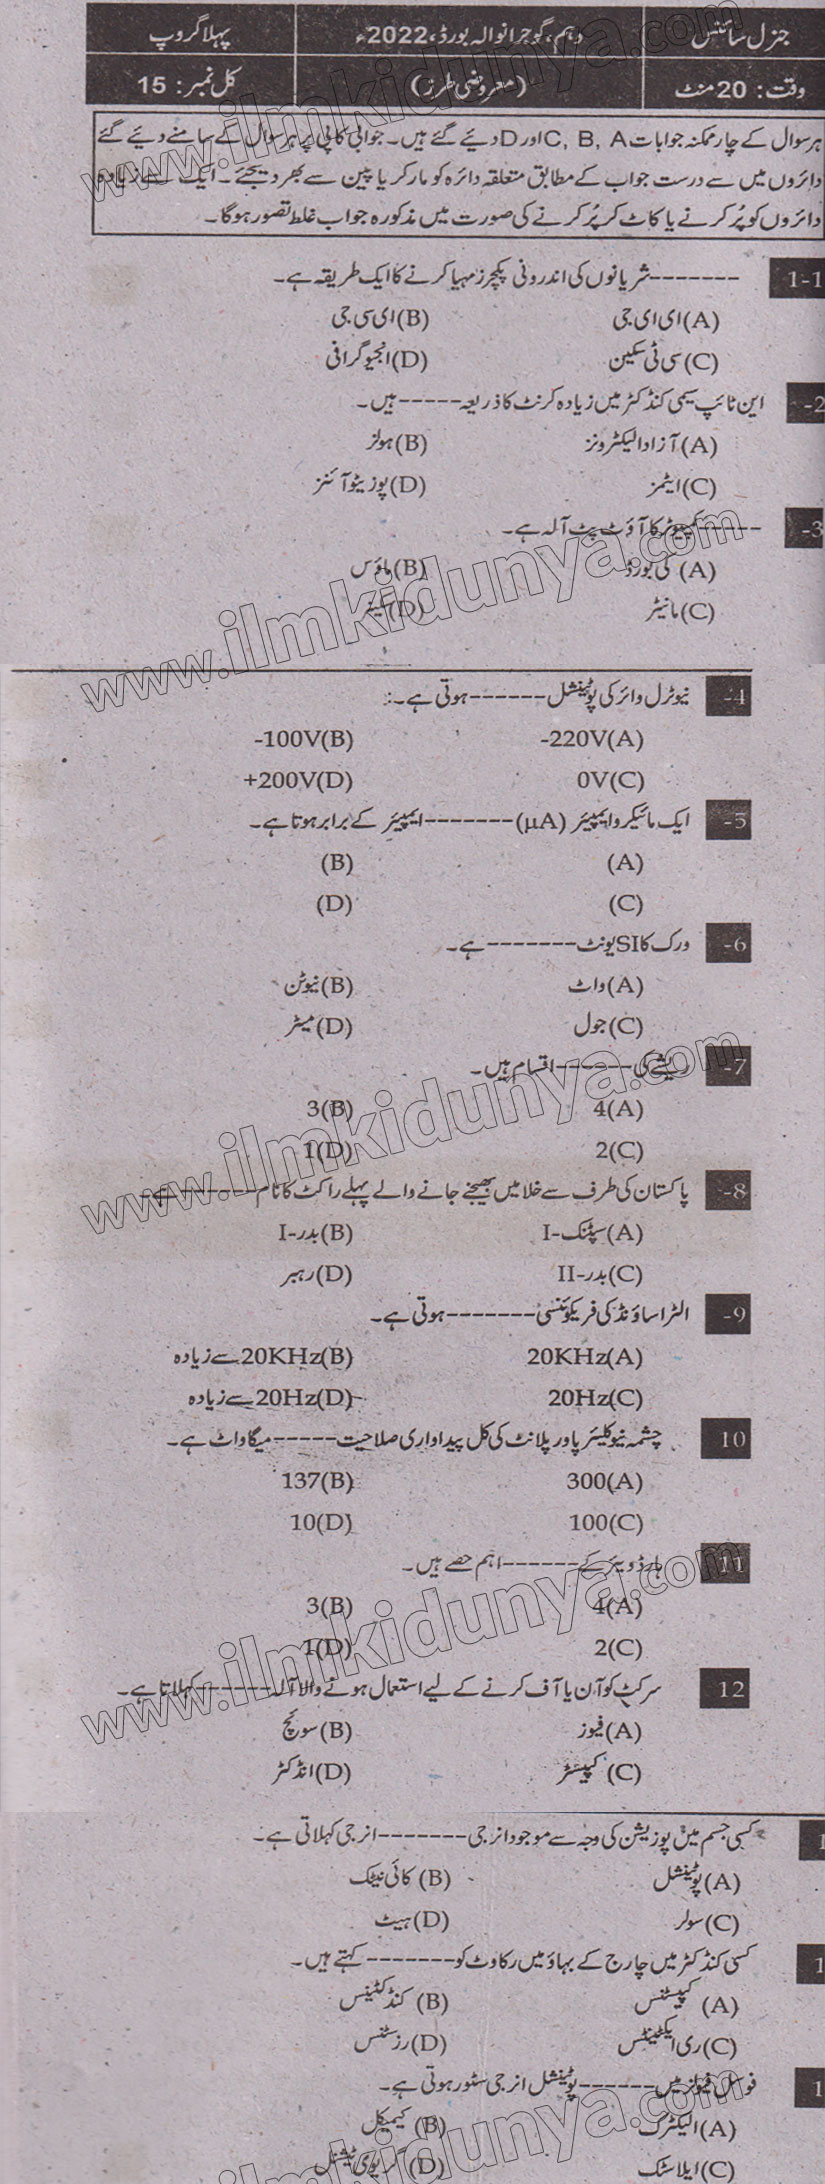 جنرل سائنس دہم، گوجرانوالہ بورڈ، 2022ء پہلا گروپ
وقت: 20 منٹ (معروضی طرز) کل نمبر: 15
ہر سوال کے چار ممکنہ جوابات A، B، C اور D دیئے گئے ہیں۔ جوابی کاپی پر ہر سوال کے سامنے دیئے گئے
دائروں میں سے درست جواب کے مطابق متعلقہ دائرہ کو مارکر یا پین سے بھر دیجئے۔ ایک سے زیادہ
دائروں کو پُر کرنے یا کاٹ کر پُر کرنے کی صورت میں مذکورہ جواب غلط تصور ہوگا۔
1-1 -------شریانوں کی اندرونی پکچرز مہیا کرنے کا ایک طریقہ ہے۔
(A) ای ای جی (B) ای سی جی
(C) سی ٹی سکین (D) انجیوگرافی
2- این ٹائپ سیمی کنڈکٹر میں زیادہ کرنٹ کا ذریعہ-----ہیں۔
(A) آزاد الیکٹرونز (B) ہولز
(C) ایٹمز (D) پوزیٹو آئنز
3- -----کمپیوٹر کا آؤٹ پٹ آلہ ہے۔
(A) کی بورڈ (B) ماؤس
(C) مانیٹر (D)
4- نیوٹرل وائر کی پوٹینشل------ہوتی ہے۔
-220V(A) -100V(B)
0V(C) +200V(D)
5- ایک مائیکرو ایمپیئر (µA)-------ایمپیئر کے برابر ہوتا ہے۔
(A) (B)
(C) (D)
6- ورک کا SI یونٹ-------ہے۔
(A) واٹ (B) نیوٹن
(C) جول (D) میٹر
7- ریشے کی------اقسام ہیں۔
4(A) 3(B)
2(C) 1(D)
8- پاکستان کی طرف سے خلا میں بھیجے جانے والے پہلے راکٹ کا نام-------ہے۔
(A) سپٹنک-I (B) بدر-I
(C) بدر-II (D) رہبر
9- الٹرا ساؤنڈ کی فریکوئنسی-------ہوتی ہے۔
20KHz(A) 20KHz(B) سے زیادہ
20Hz(C) 20Hz(D) سے زیادہ
10 چشمہ نیوکلیئر پاور پلانٹ کی کل پیداواری صلاحیت-----میگاواٹ ہے۔
300(A) 137(B)
100(C) 10(D)
11 ہارڈ ویئر کے------اہم حصے ہیں۔
4(A) 3(B)
2(C) 1(D)
12 سرکٹ کو آن یا آف کرنے کے لیے استعمال ہونے والا آلہ------کہلاتا ہے۔
(A) فیوز (B) سوئچ
(C) کپیسٹر (D) انڈکٹر
1 کسی جسم میں پوزیشن کی وجہ سے موجود انرجی-------انرجی کہلاتی ہے۔
(A) پوٹینشل (B) کائی نیٹک
(C) سولر (D) ہیٹ
1 کسی کنڈکٹر میں چارج کے بہاؤ میں رکاوٹ کو-------کہتے ہیں۔
(A) کپیسٹنس (B) کنڈکٹینس
(C) ری ایکٹینٹس (D) رزسٹنس
1 فوسل فیولز میں------پوٹینشل انرجی سٹور ہوتی ہے۔
(A) الیکٹرک (B) کیمیکل
(C) ایلاسٹک (D) گریوی ٹیشنل
www.ilmkidunya.com
www.ilmkidunya.com
www.ilmkidunya.com
www.ilmkidunya.com
www.ilmkidunya.com